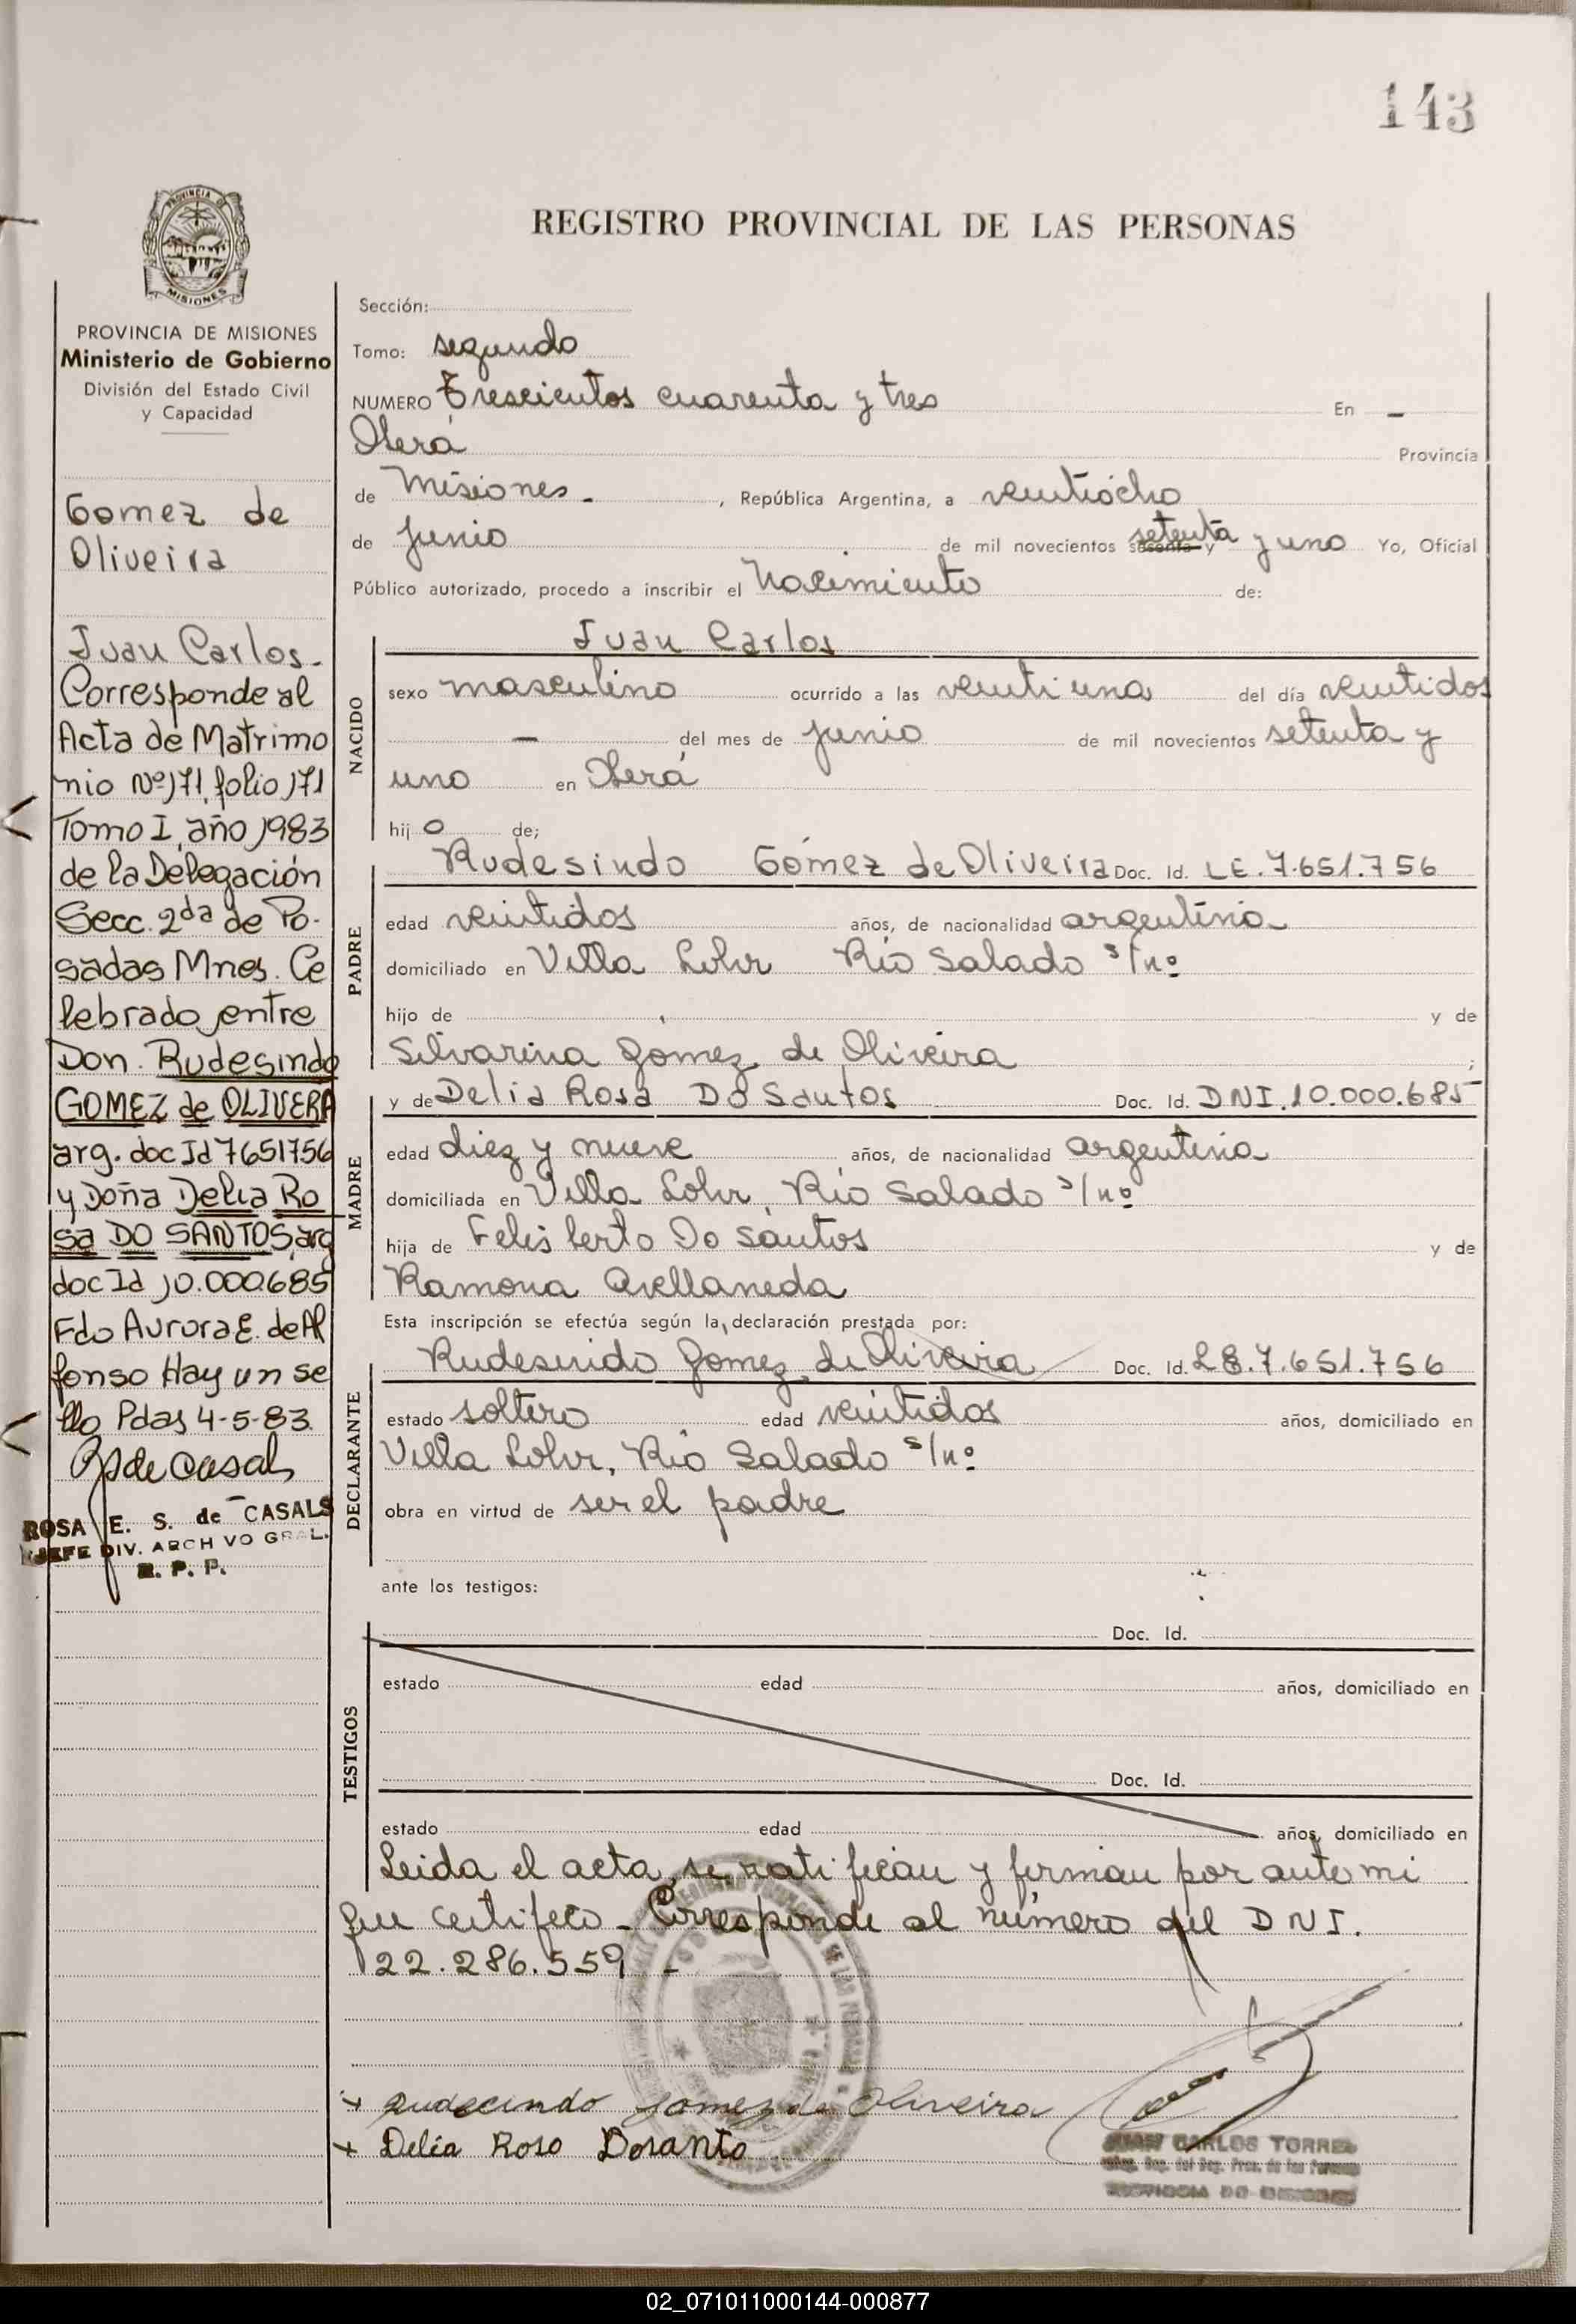 143
REGISTRO PROVINCIAL DE LAS PERSONAS
PROVINCIA DE
MISIONES
PROVINCIA DE MISIONES
Ministerio de Gobierno
División del Estado Civil
y Capacidad
Gomez de
Oliveira
Juan Carlos.
Corresponde al
Acta de Matrimo
nio Nº 171, folio 171
Tomo I, año 1983
de la Delegación
Secc. 2da de Po-
sadas Mnes. Ce
lebrado entre
Don. Rudesindo
GOMEZ de OLIVERA
arg. doc Id 7651756
y Doña Delia Ro
sa DO SANTOS, arg
doc Id 10.000.685
Fdo Aurora E. de Al
fonso Hay un se
llo Pdas 4-5-83.
de Casals
ROSA E. S. de CASALS
JEFE DIV. ARCHIVO GRAL.
R. P. P.
Sección:
Tomo: segundo
NUMERO Trescientos cuarenta y tres En -
Oberá Provincia
de Misiones. , República Argentina, a veintiocho
de junio de mil novecientos sesenta y setenta y uno Yo, Oficial
Público autorizado, procedo a inscribir el Nacimiento de:
NACIDO
Juan Carlos
sexo masculino ocurrido a las veintiuna del día veintidos
- del mes de junio de mil novecientos setenta y
uno en Oberá
hij o de;
PADRE
Rudesindo Gómez de Oliveira Doc. Id. LE. 7.651.756
edad veintidos años, de nacionalidad argentina
domiciliado en Villa Lohr Río Salado s/nº
hijo de y de
Silvarina Gómez de Oliveira ;
MADRE
y de Delia Rosa Do Santos Doc. Id. DNI. 10.000.685
edad diez y nueve años, de nacionalidad argentina
domiciliada en Villa Lohr, Río Salado s/nº
hija de Felisberto Do Santos y de
Ramona Avellaneda
Esta inscripción se efectúa según la declaración prestada por:
DECLARANTE
Rudesindo Gomez de Oliveira Doc. Id. LE. 7.651.756
estado soltero edad veintidos años, domiciliado en
Villa Lohr, Río Salado s/nº
obra en virtud de ser el padre
ante los testigos:
TESTIGOS
Doc. Id.
estado edad años, domiciliado en
Doc. Id.
estado edad años, domiciliado en
Leida el acta, se ratifican y firman por ante mi
que certifico - Corresponde al número del DNI.
22.286.559 -
Rudecindo Gomez de Oliveira
Delia Roso Dosanto
JUAN CARLOS TORRES
PROVINCIA DE MISIONES
02_071011000144-000877